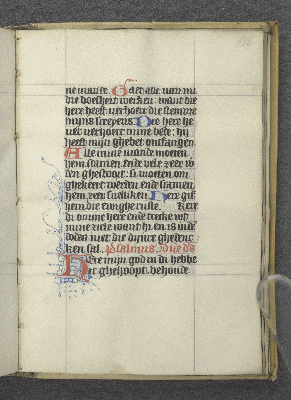 ne marte. Gaet alle van mi
die boesheit werken: want die
here heeft verhoert die stemme
mijns screyens. Die here he
vet verhoert mine bede: hij
heeft mijn ghebet ontfangen
Alle mine viande moeten
hem scamen ende vele zeer w
den ghestoert: si moeten om
ghekeert werden ende scamen
hem zeer snelliken. Here gif
hem die ewighe ruste. Keer
di omme here ende trecke wt
mine ziele want
doden niet die dijnre ghedenc
ken sal. Psalmus. Dns ds
Here mijn god in di hebbe
ic ghehoopt. behoude